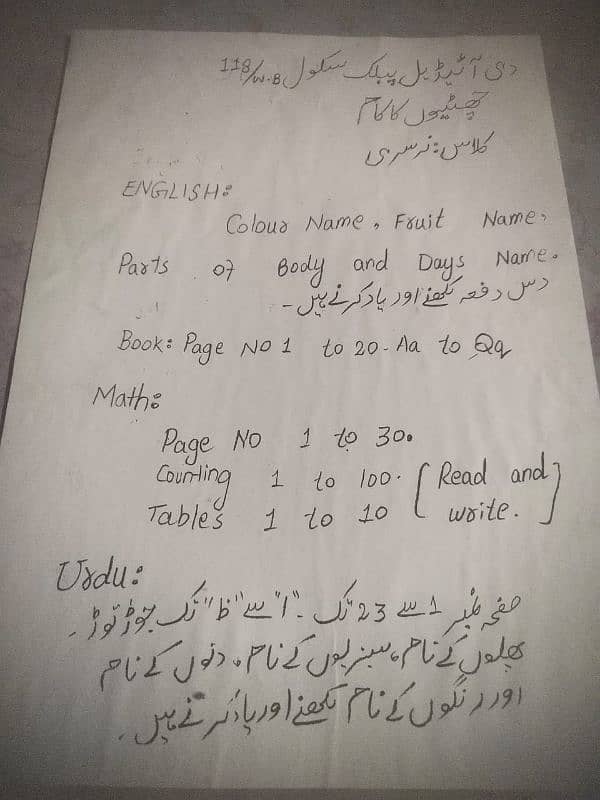 دی آئیڈیل پبلک سکول 118/W.B
چھٹیوں کا کام
کلاس: نرسری
ENGLISH:
Colour Name, Fruit Name,
Parts of Body and Days Name.
دس دفعہ لکھنے اور یاد کرنے ہیں۔
Book: Page NO 1 to 20- Aa to Qq
Math:
Page NO 1 to 30.
Counting 1 to 100. [Read and
Tables 1 to 10 write.]
Urdu:
صفحہ نمبر 1 سے 23 تک۔ "ا" سے "ظ" تک جوڑ توڑ۔
پھلوں کے نام، سبزیوں کے نام، دنوں کے نام
اور رنگوں کے نام لکھنے اور یاد کرنے ہیں۔